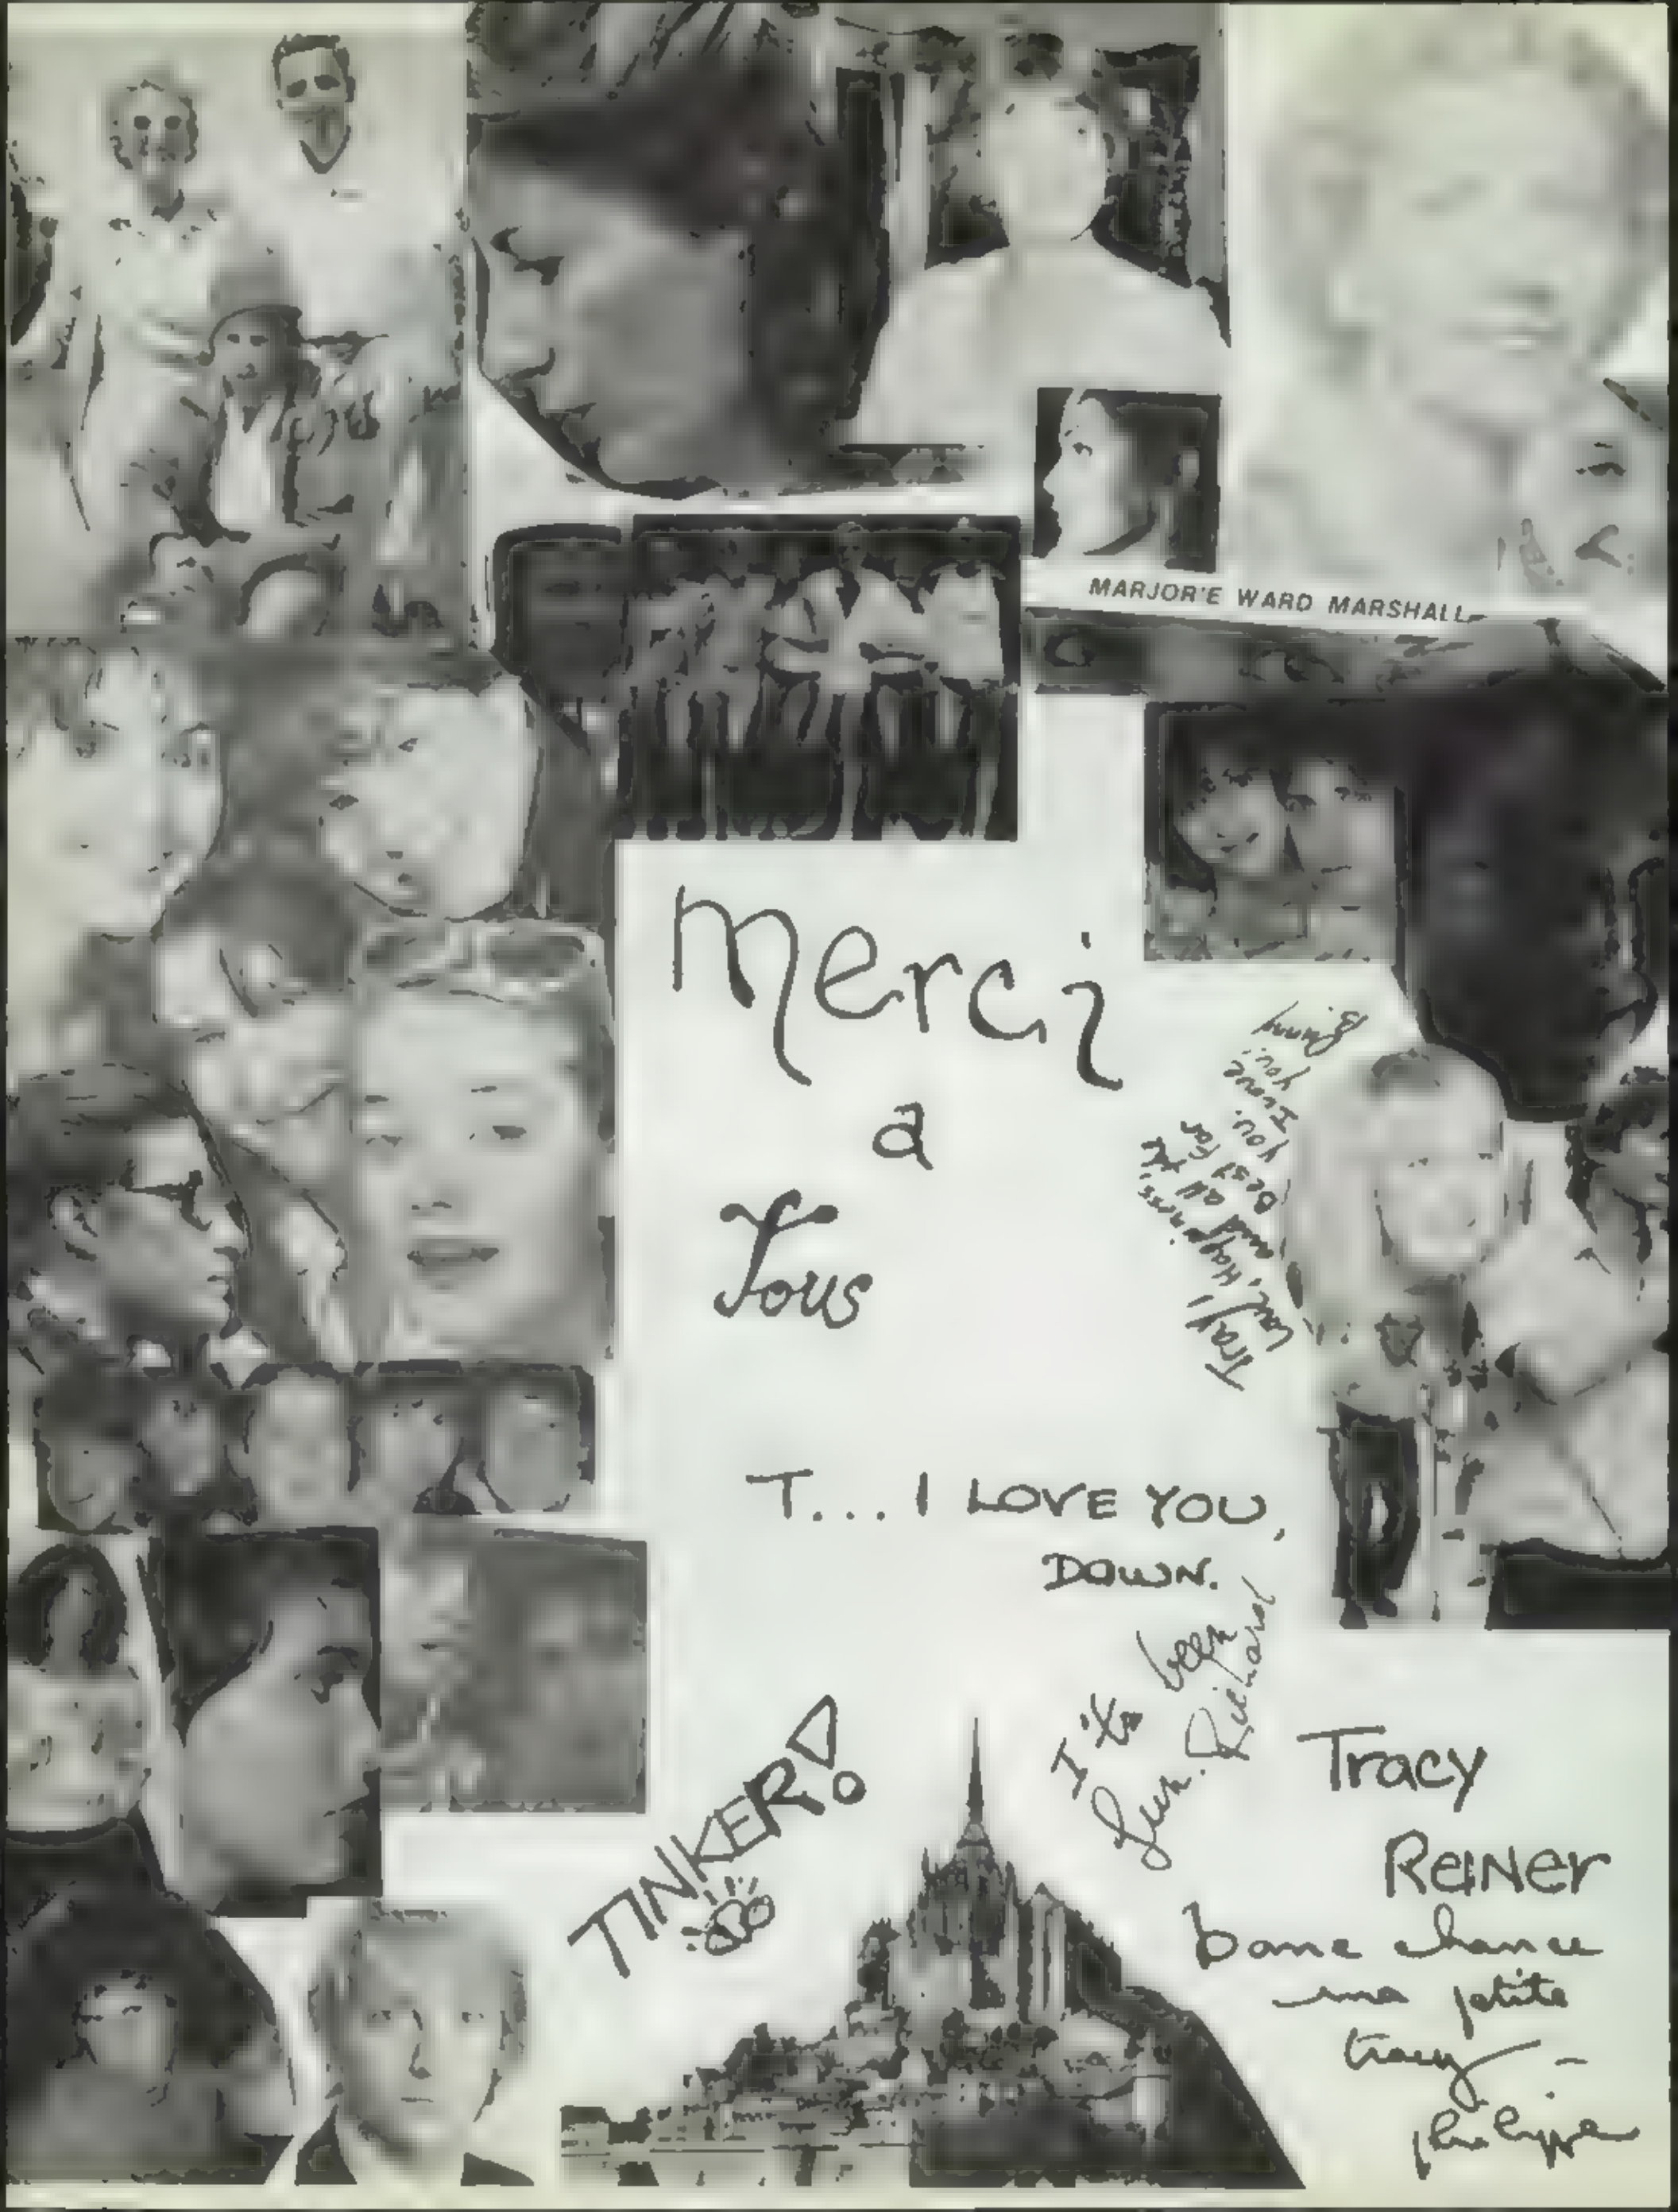 MARJOR'E WARD MARSHALL
Merci
a
Tous
Tray!
Love, Happiness,
and all the
Best for
you. I love
you!
T... I LOVE YOU,
DAWN.
It's been
fun. Richard
TINKER!
Tracy
Reiner
bonne chance
ma petite
tracy -
philippe